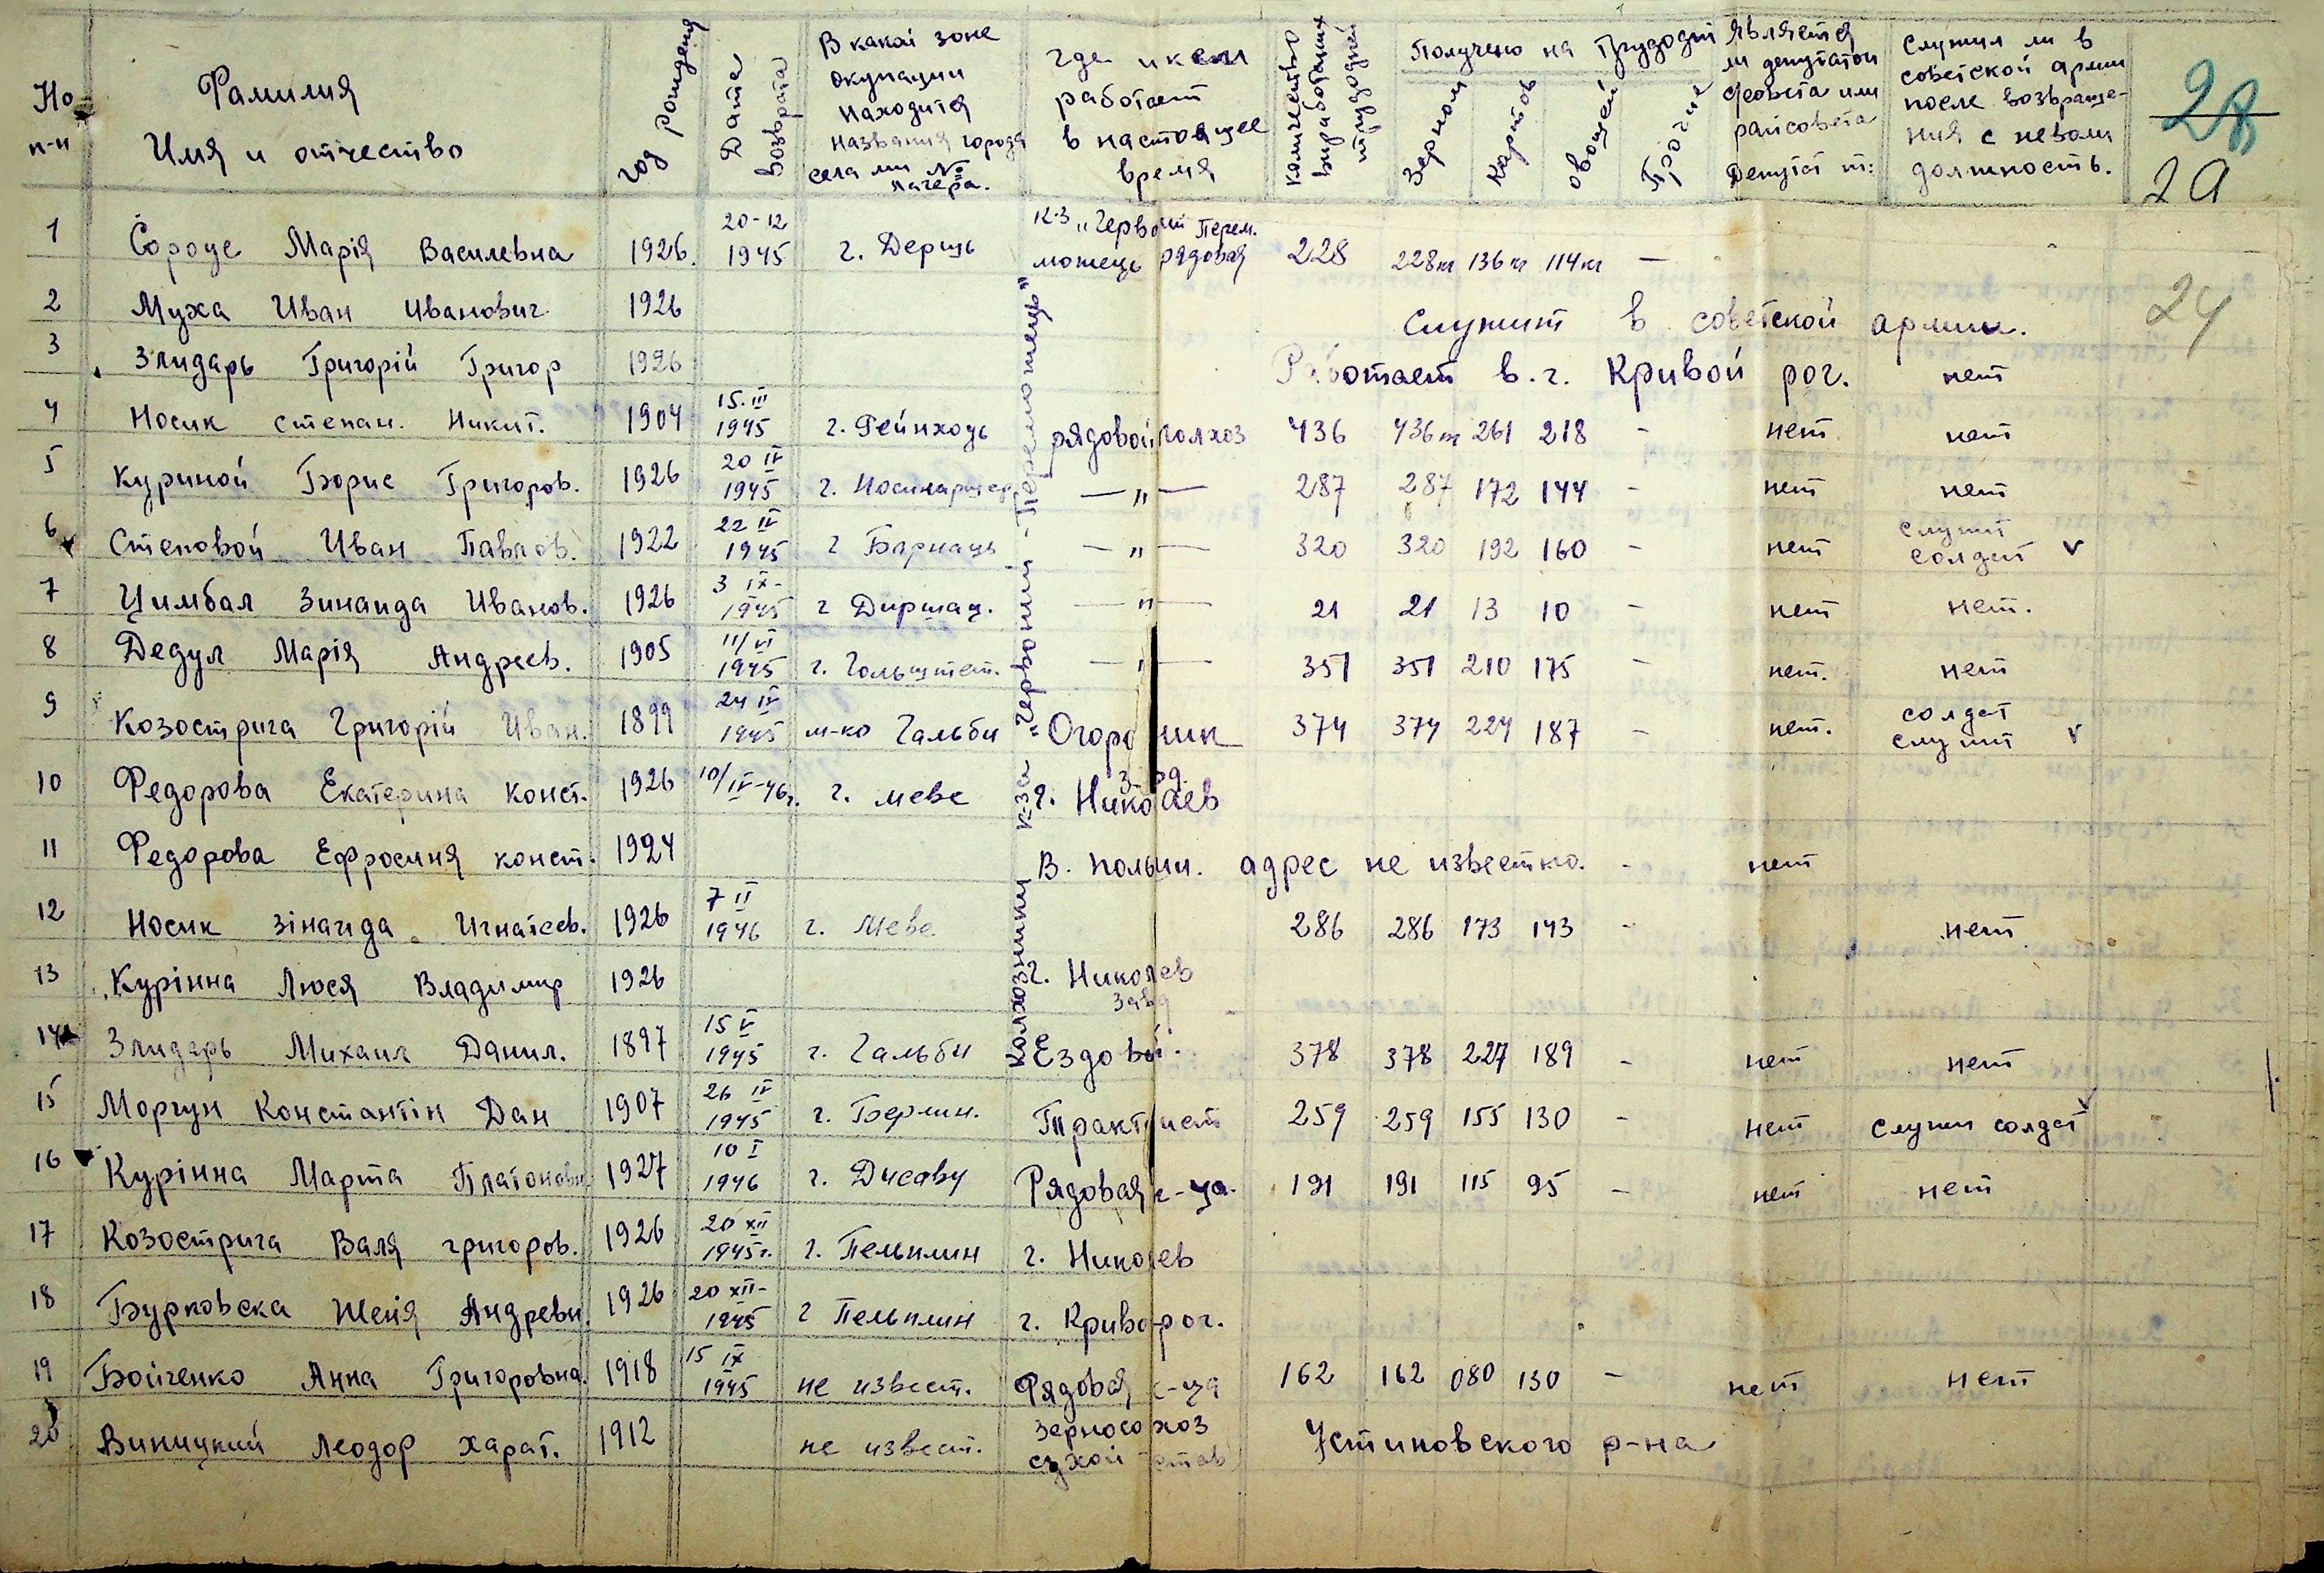 Но п-п
Фамилия Имя и отчество
год рождения
Дата возврата
В какой зоне окупации находится названия города села или № лагера.
где и кем работает в настоящее время
количество выработаних трудодней
Получено на трудодни
Зерном
Картов
овощей
Прочие
является ли депутатом уловета или райсовета Депутат
Служил ли в советской армии после возвращения с неволи должность.
28
29
24
Колхозники к-за "Червоний-Переможець"
1 Сороце Марія Василевна 1926. 20-12 1945 г. Дершь к-з "Червоний Переможець рядовая 228 228кг 136кг 114кг —
2 Муха Иван Иванович 1926 Служит в советской армии.
3 Злидарь Григорій Григор 1926 Работает в.г. Кривой рог. нет
4 Носик Степан. Никит. 1904 15.III 1945 г. Рейнходь рядовой колхоз 436 436кг 261 218 - нет нет
5 Куриной Борис Григоров. 1926 20 IV 1945 г. —"— 287 287 172 144 - нет нет
6 Степовой Иван Павлов. 1922 22 IV 1945 г —"— 320 320 192 160 - нет служит солдат v
7 Цимбал Зинаида Иванов. 1926 3 IX- 1945 г Диршац. —"— 21 21 13 10 - нет нет.
8 Дедул Марія Андреев. 1905 11/VI 1945 г. Гольштет. —"— 351 351 210 175 - нет. нет
9 Козострига Григорій Иван. 1899 24 IV 1945 м-ко Гальби Огородник 374 374 224 187 - нет. солдат служит v
10 Федорова Екатерина Конст. 1926 10/IV-46г. г. меве г. Николаев
11 Федорова Ефросиня конст. 1924 В. польши. адрес не известно. - нет
12 Носик Зінаида Игнатеев. 1926 7 II 1946 г. Меве 286 286 173 143 - нет
13 Курінна Люся Владимир 1926 г. Николаев завод
14 Злидарь Михаил Данил. 1897 15 V 1945 г. Гальби Ездовой. 378 378 227 189 - нет нет
15 Моргун Константін Дан 1907 26 IV 1945 г. Берлин. Тракторист 259 259 155 130 - нет служил солдат v
16 Курінна Марта Платоновн 1927 10 I 1946 г. Дисаву Рядовая к-ца. 191 191 115 95 - нет нет
17 Козострига Валя григоров. 1926 20 XII 1945г. г. Пельплин г. Николаев
18 Бурковска Женя Андревн. 1926 20 XII- 1945 г Пельплин г. Кривой-рог.
19 Бойченко Анна Григоровна. 1918 15 IX 1945 не извест. Рядовая к-ца 162 162 080 130 - нет нет
20 Виницкий Леодор Харат. 1912 не извест. Зерносовхоз сухой став Устиновского р-на